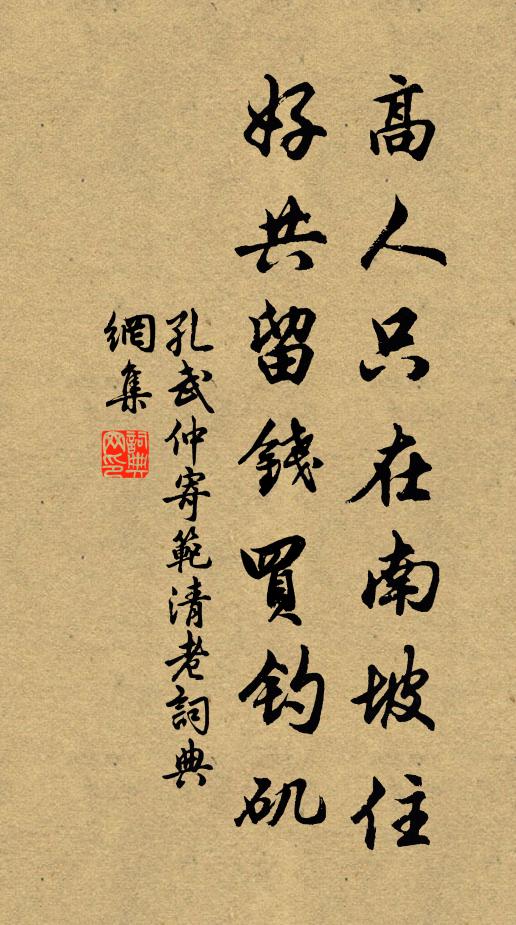 高人只在南坡住
好共留錢買釣矶
孔武仲寄範清老詞典
網集
詞典
网印